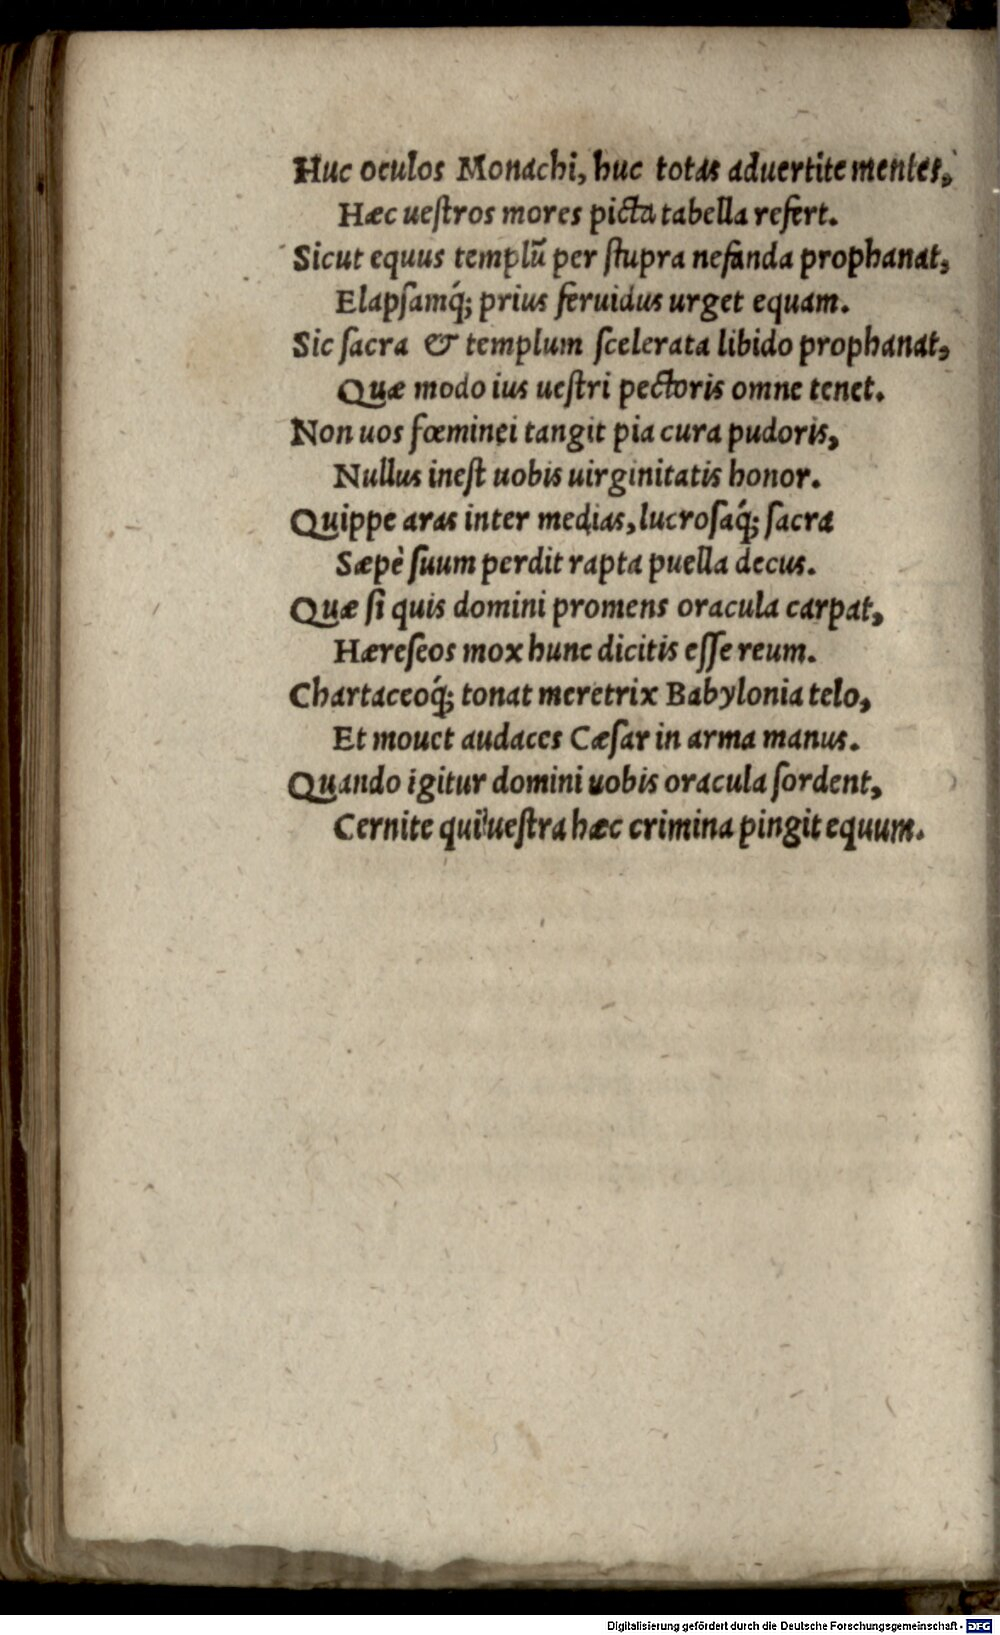 Huc oculos Monachi, huc totas aduertite mentes,
Hæc uestros mores picta tabella refert.
Sicut equus templũ per stupra nefanda prophanat,
Elapsamq́; prius feruidus urget equam.
Sic sacra & templum scelerata libido prophanat,
Quæ modo ius uestri pectoris omne tenet.
Non uos fœminei tangit pia cura pudoris,
Nullus inest uobis uirginitatis honor.
Quippe aras inter medias, lucrosaq́; sacra
Sæpè suum perdit rapta puella decus.
Quæ si quis domini promens oracula carpat,
Hæreseos mox hunc dicitis esse reum.
Chartaceoq́; tonat meretrix Babylonia telo,
Et mouet audaces Cæsar in arma manus.
Quando igitur domini uobis oracula sordent,
Cernite qui uestra hæc crimina pingit equum.
Digitalisierung gefördert durch die Deutsche Forschungsgemeinschaft - DFG